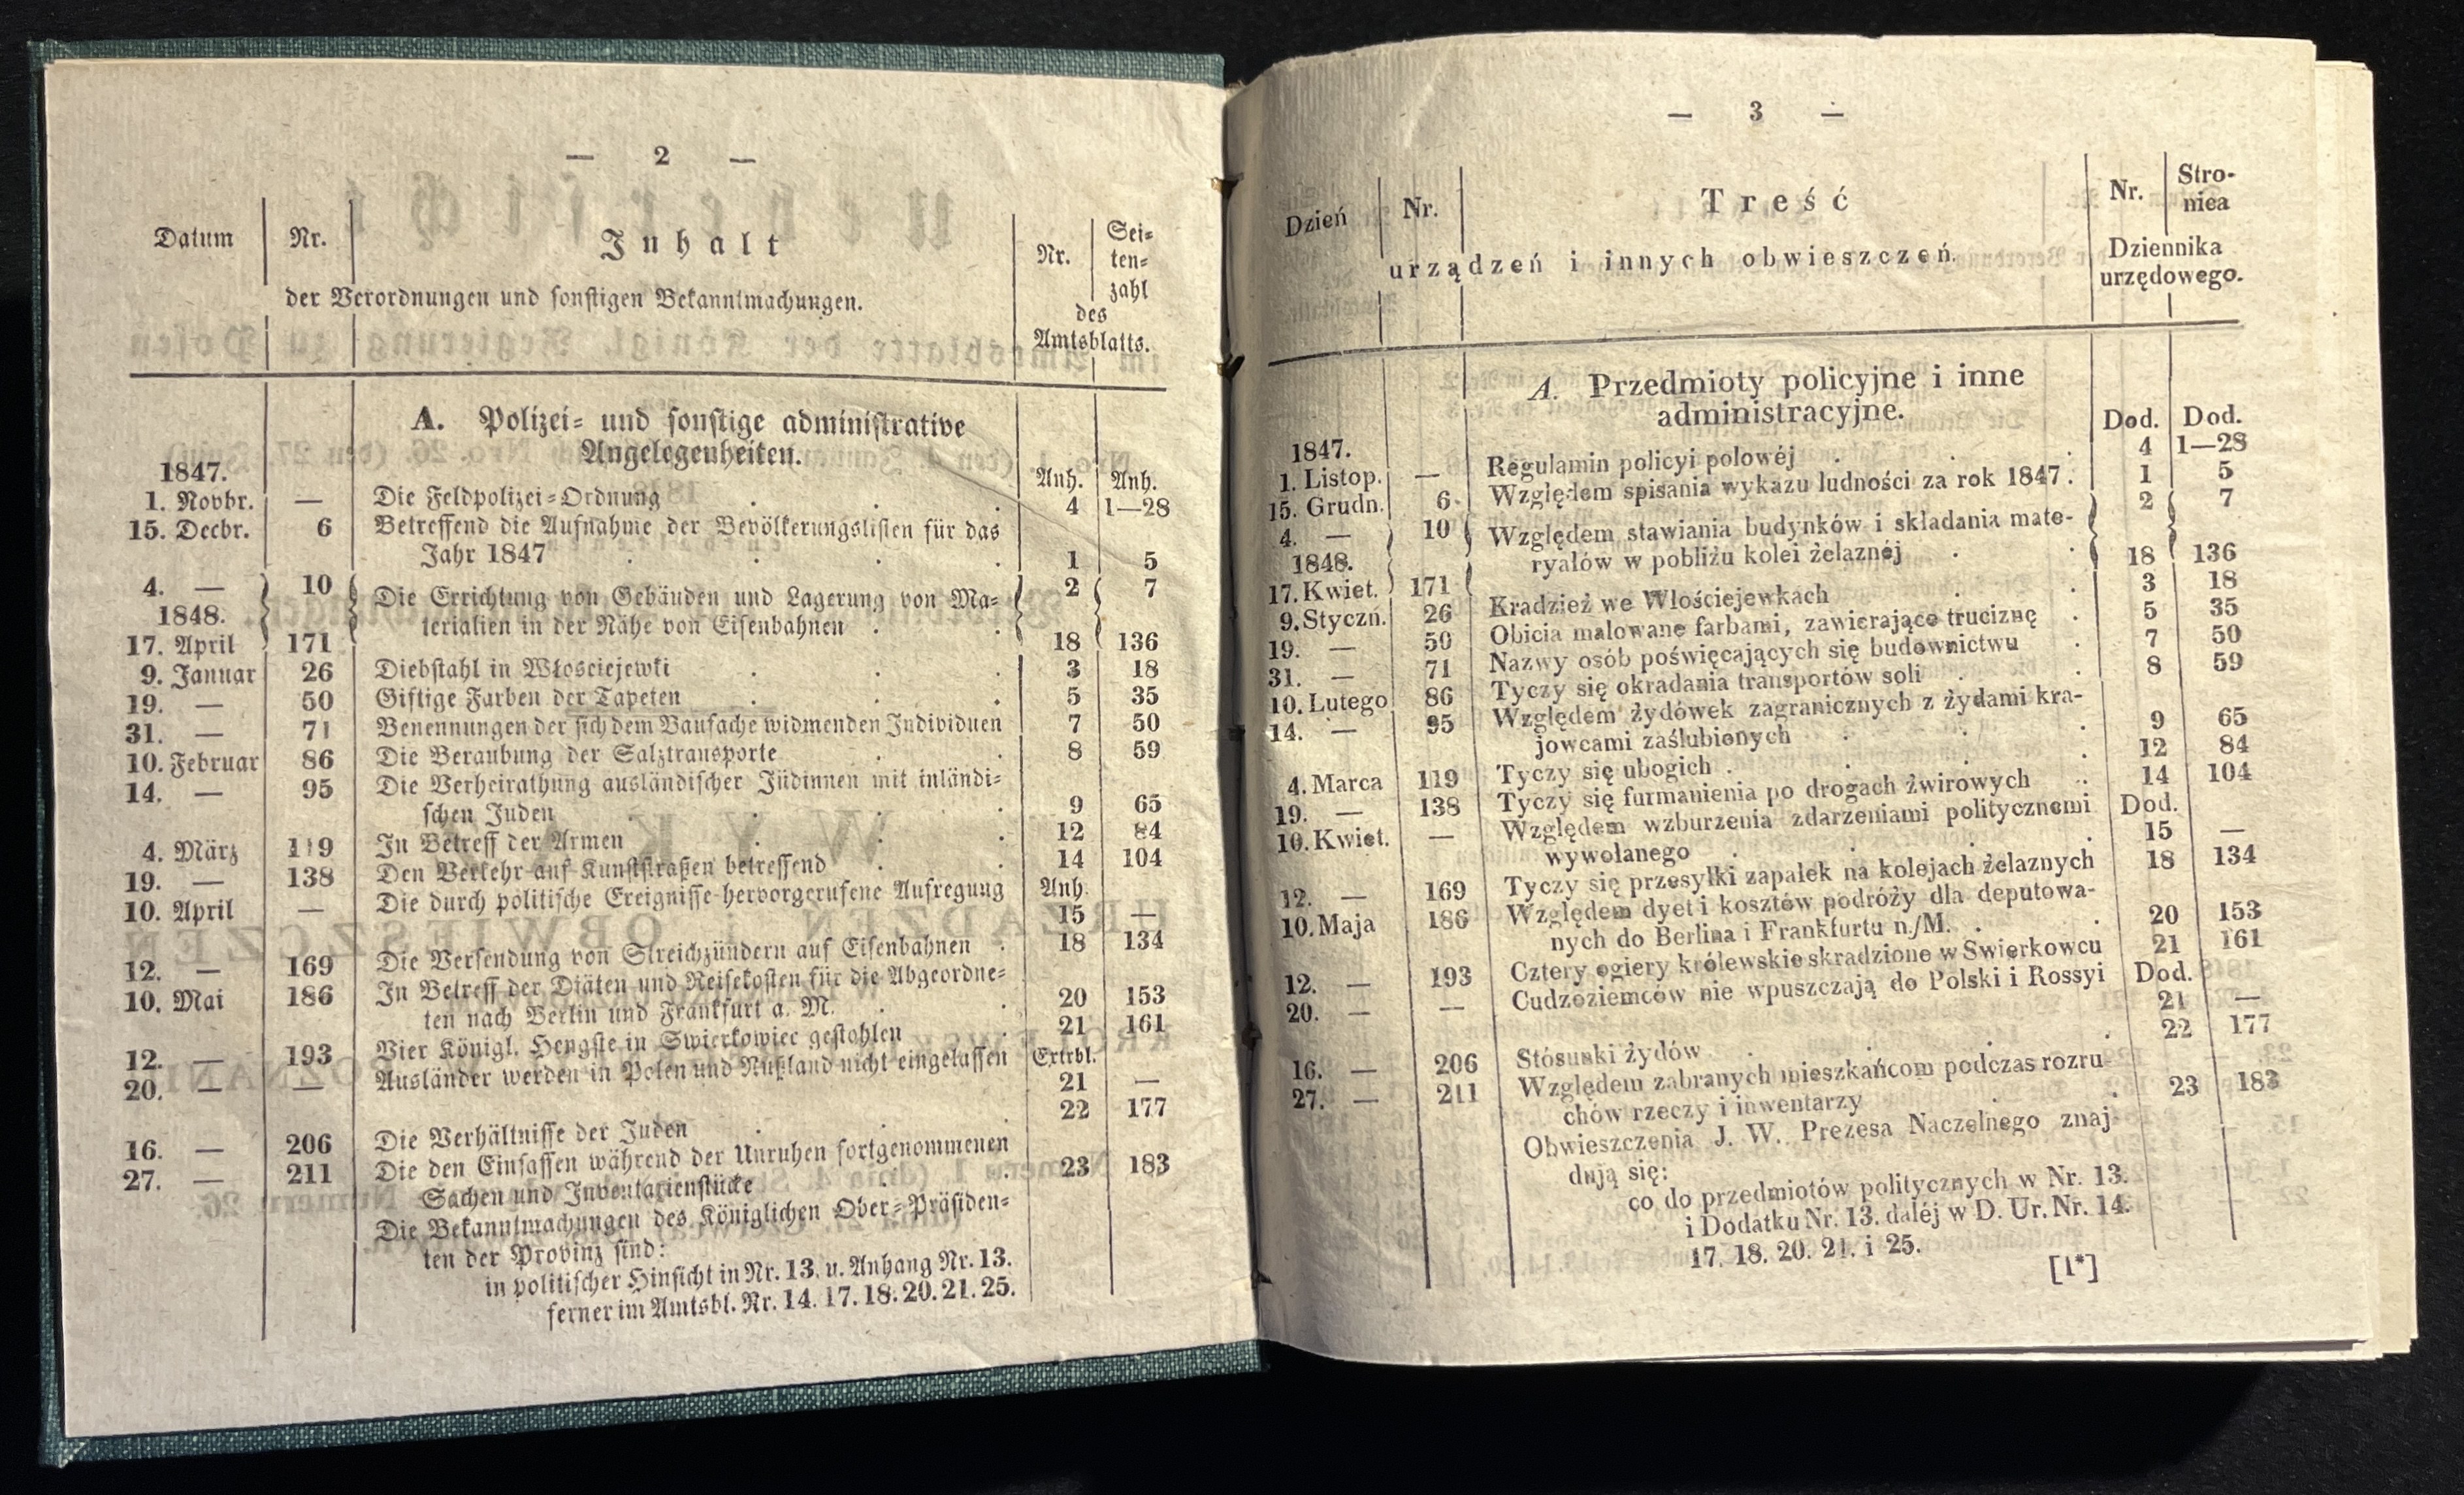 — 2 —
Datum Nr. Inhalt Nr. Sei-
ten-
zahl
der Verordnungen und sonstigen Bekanntmachungen.
des
Amtsblatts.
A. Polizei- und sonstige administrative
Angelegenheiten.
1847. Anh. Anh.
1. Novbr. — Die Feldpolizei-Ordnung . . . 4 1—28
15. Decbr. 6 Betreffend die Aufnahme der Bevölkerungslisten für das
Jahr 1847 . . . . 1 5
4. — 10 Die Errichtung von Gebäuden und Lagerung von Ma- 2 7
1848. terialien in der Nähe von Eisenbahnen . .
17. April 171 18 136
9. Januar 26 Diebstahl in Włosciejewki . . . 3 18
19. — 50 Giftige Farben der Tapeten . . . 5 35
31. — 71 Benennungen der sich dem Baufache widmenden Individuen 7 50
10. Februar 86 Die Beraubung der Salztransporte . . 8 59
14. — 95 Die Verheirathung ausländischer Jüdinnen mit inländi-
schen Juden . . . . 9 65
4. März 119 In Betreff der Armen . . . 12 84
19. — 138 Den Verkehr auf Kunststraßen betreffend . . 14 104
10. April — Die durch politische Ereignisse hervorgerufene Aufregung Anh.
15 —
12. — 169 Die Versendung von Streichzündern auf Eisenbahnen . 18 134
10. Mai 186 In Betreff der Diäten und Reisekosten für die Abgeordne-
ten nach Berlin und Frankfurt a. M. . . 20 153
12. — 193 Vier Königl. Hengste in Swierkowiec gestohlen . 21 161
20. — — Ausländer werden in Polen und Rußland nicht eingelassen Extrbl.
21 —
16. — 206 Die Verhältnisse der Juden . . . 22 177
27. — 211 Die den Einsassen während der Unruhen fortgenommenen
Sachen und Inventarienstücke . . 23 183
Die Bekanntmachungen des Königlichen Ober-Präsiden-
ten der Provinz sind:
in politischer Hinsicht in Nr. 13. u. Anhang Nr. 13.
ferner im Amtsbl. Nr. 14. 17. 18. 20. 21. 25.
— 3 —
Dzień Nr. Treść Nr. Stro-
nica
urządzeń i innych obwieszczeń. Dziennika
urzędowego.
A. Przedmioty policyjne i inne
administracyjne. Dod. Dod.
1847.
1. Listop. — Regulamin policyi polowéj . . . 4 1—28
15. Grudn. 6 Względem spisania wykazu ludności za rok 1847 . 1 5
4. — 10 Względem stawiania budynków i składania mate- 2 7
1848. ryałów w pobliżu kolei żelaznéj . .
17. Kwiet. 171 18 136
9. Styczń. 26 Kradzież we Włościejewkach . . 3 18
19. — 50 Obicia malowane farbami, zawierające truciznę . 5 35
31. — 71 Nazwy osób poświęcających się budownictwu . 7 50
10. Lutego 86 Tyczy się okradania transportów soli . . 8 59
14. — 95 Względem żydówek zagranicznych z żydami kra-
jowcami zaślubionych . . . 9 65
4. Marca 119 Tyczy się ubogich . . . . 12 84
19. — 138 Tyczy się furmanienia po drogach żwirowych . 14 104
10. Kwiet. — Względem wzburzenia zdarzeniami politycznemi Dod.
wywołanego . . . . 15 —
12. — 169 Tyczy się przesyłki zapałek na kolejach żelaznych 18 134
10. Maja 186 Względem dyet i kosztów podróży dla deputowa-
nych do Berlina i Frankfurtu n./M. . . 20 153
12. — 193 Cztery ogiery królewskie skradzione w Swierkowcu 21 161
20. — — Cudzoziemców nie wpuszczają do Polski i Rossyi Dod.
21 —
16. — 206 Stósunki żydów . . . . 22 177
27. — 211 Względem zabranych mieszkańcom podczas rozru
chów rzeczy i inwentarzy . . 23 183
Obwieszczenia J. W. Prezesa Naczelnego znaj
dują się:
co do przedmiotów politycznych w Nr. 13.
i Dodatku Nr. 13. daléj w D. Ur. Nr. 14.
17. 18. 20. 21. i 25.
[1*]